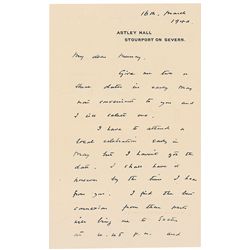 16th. March
1940.
ASTLEY HALL
STOURPORT ON SEVERN.
My dear Murray,
Give me two or
three dates in early May
most convenient to you and
I will select one.
I have to attend a
local celebration early in
May but I haven't got the
date. I shall have it
however by the time I hear
from you. I find the best
connexion from these parts
will bring me to
at 4.45 p.m. and